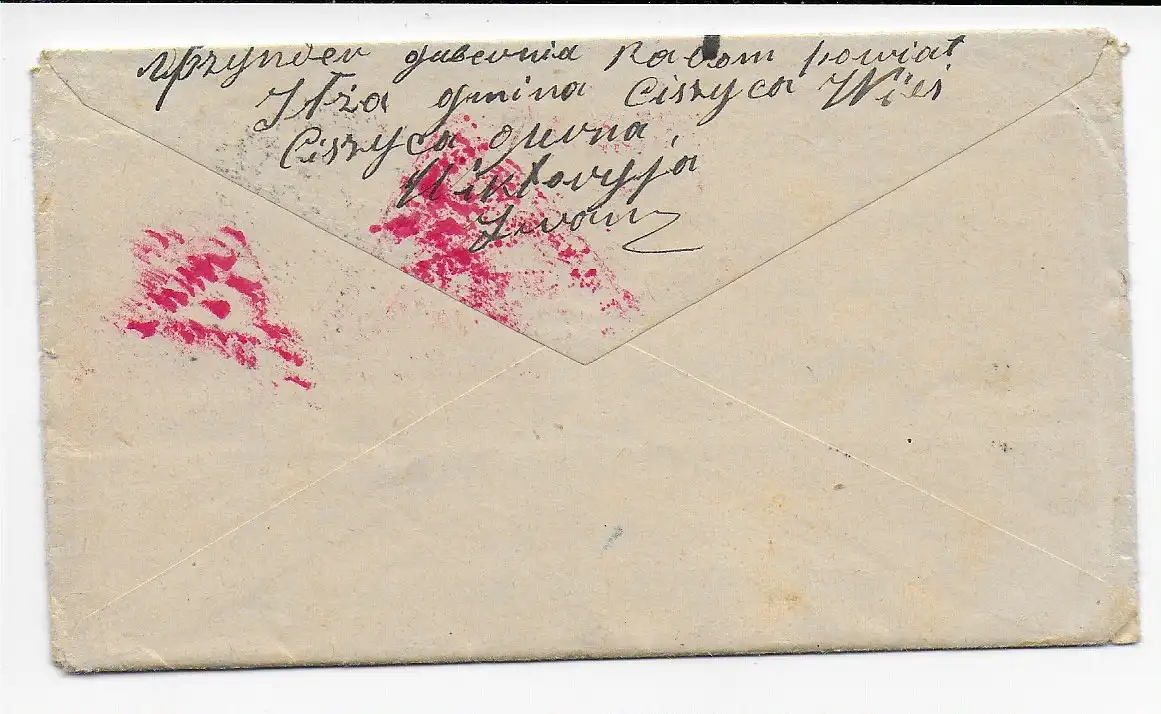 gubernia Radom powiat
Iłża gmina Ciszyca Wieś
Ciszyca guvna,
Wiktoryja